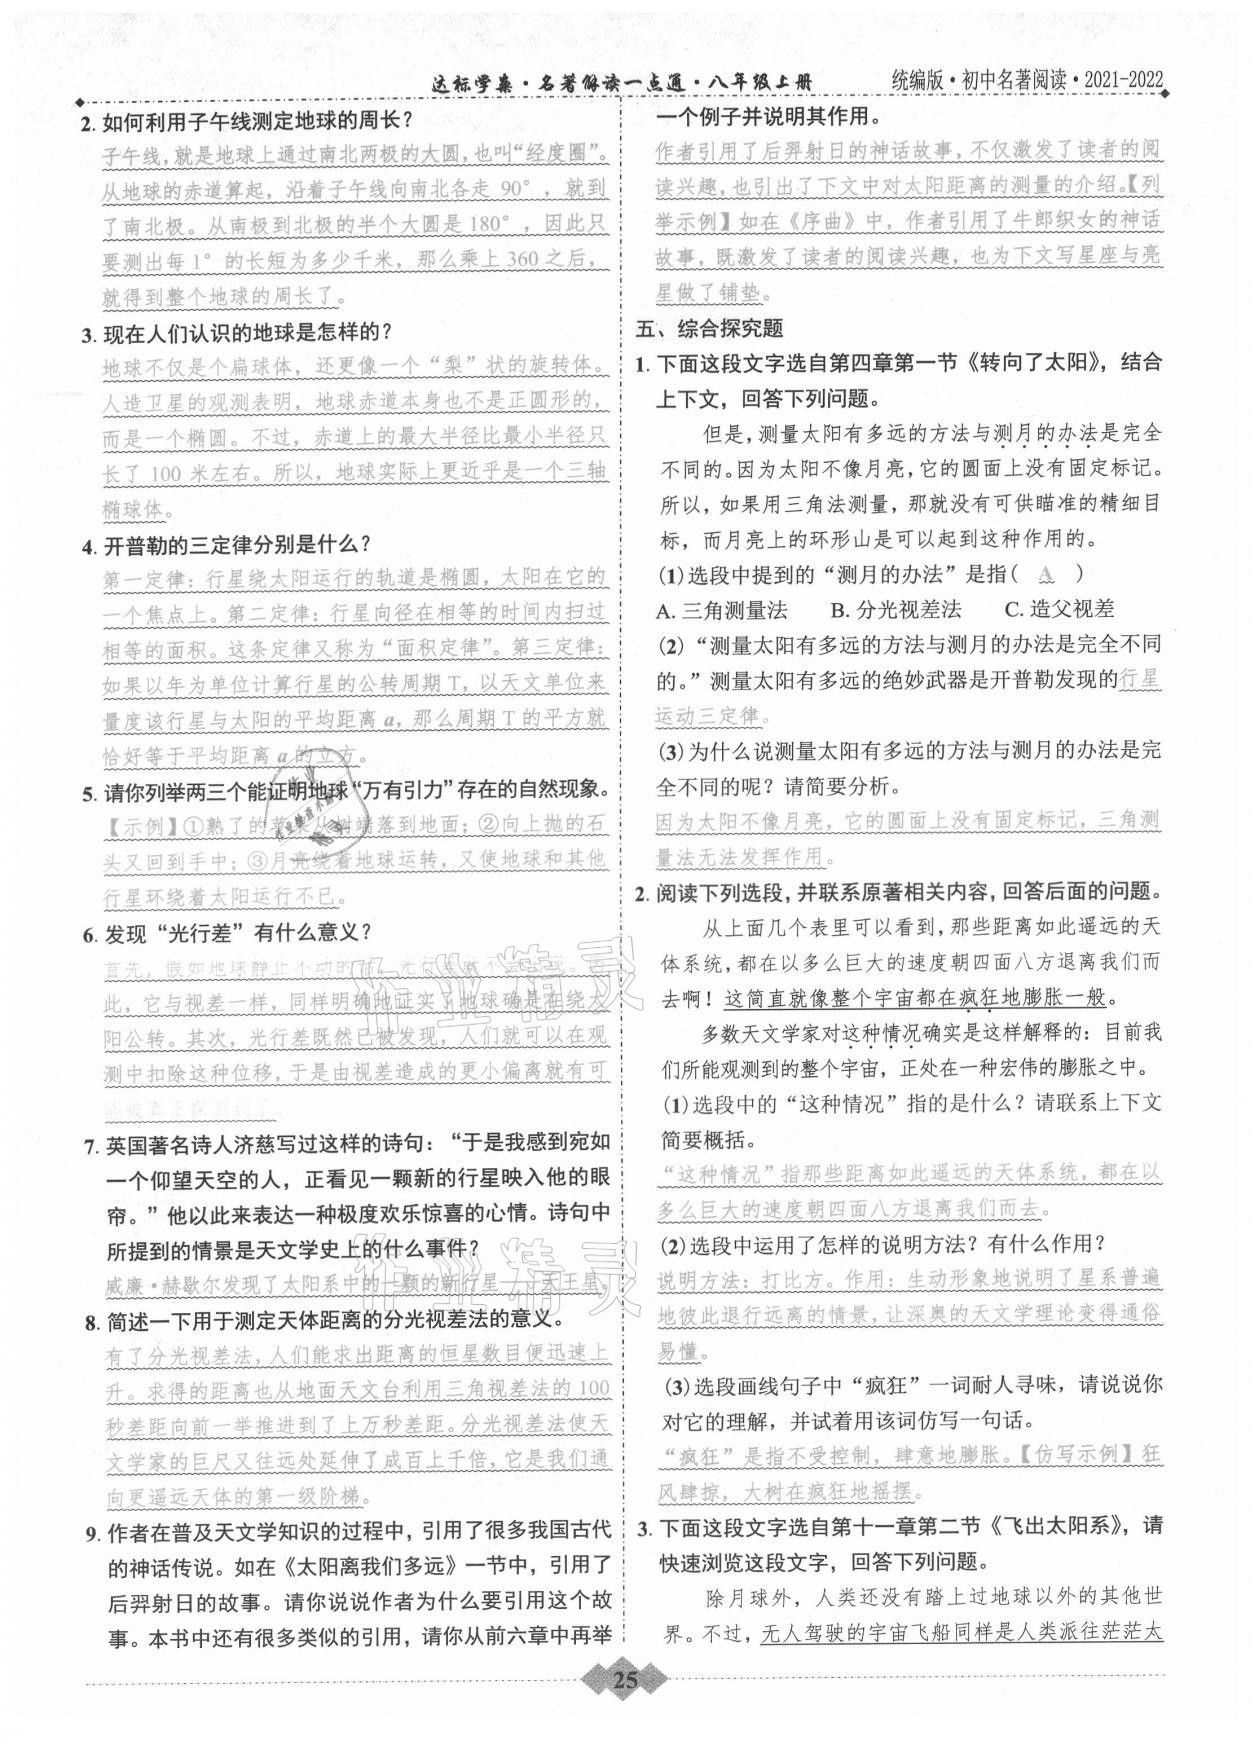 达标学案·名著解读一点通·八年级上册
统编版·初中名著阅读·2021-2022
2. 如何利用子午线测定地球的周长？
子午线，就是地球上通过南北两极的大圆，也叫“经度圈”。
从地球的赤道算起，沿着子午线向南北各走 90°，就到
了南北极。从南极到北极的半个大圆是180°，因此只
要测出每 1°的长短为多少千米，那么乘上 360 之后，
就得到整个地球的周长了。
3. 现在人们认识的地球是怎样的？
地球不仅是个扁球体，还更像一个“梨”状的旋转体。
人造卫星的观测表明，地球赤道本身也不是正圆形的，
而是一个椭圆。不过，赤道上的最大半径比最小半径只
长了 100 米左右。所以，地球实际上更近乎是一个三轴
椭球体。
4. 开普勒的三定律分别是什么？
第一定律：行星绕太阳运行的轨道是椭圆，太阳在它的
一个焦点上。第二定律：行星向径在相等的时间内扫过
相等的面积。这条定律又称为“面积定律”。第三定律：
如果以年为单位计算行星的公转周期 T，以天文单位来
量度该行星与太阳的平均距离 a，那么周期 T 的平方就
恰好等于平均距离 a 的立方。
5. 请你列举两三个能证明地球“万有引力”存在的自然现象。
【示例】①熟了的苹果从树端落到地面；②向上抛的石
头又回到手中；③月亮绕着地球运转，又使地球和其他
行星环绕着太阳运行不已。
6. 发现“光行差”有什么意义？
首先，假如地球静止不动的话，光行差就不
此，它与视差一样，同样明确地证实了地球确是在绕太
阳公转。其次，光行差既然已被发现，人们就可以在观
测中扣除这种位移，于是由视差造成的更小偏离就有可
能被真正探测到了。
7. 英国著名诗人济慈写过这样的诗句：“于是我感到宛如
一个仰望天空的人，正看见一颗新的行星映入他的眼
帘。”他以此来表达一种极度欢乐惊喜的心情。诗句中
所提到的情景是天文学史上的什么事件？
威廉·赫歇尔发现了太阳系中的一颗的新行星——天王星。
8. 简述一下用于测定天体距离的分光视差法的意义。
有了分光视差法，人们能求出距离的恒星数目便迅速上
升。求得的距离也从地面天文台利用三角视差法的 100
秒差距向前一举推进到了上万秒差距。分光视差法使天
文学家的巨尺又往远处延伸了成百上千倍，它是我们通
向更遥远天体的第一级阶梯。
9. 作者在普及天文学知识的过程中，引用了很多我国古代
的神话传说。如在《太阳离我们多远》一节中，引用了
后羿射日的故事。请你说说作者为什么要引用这个故
事。本书中还有很多类似的引用，请你从前六章中再举
一个例子并说明其作用。
作者引用了后羿射日的神话故事，不仅激发了读者的阅
读兴趣，也引出了下文中对太阳距离的测量的介绍。【列
举示例】如在《序曲》中，作者引用了牛郎织女的神话
故事，既激发了读者的阅读兴趣，也为下文写星座与亮
星做了铺垫。
五、综合探究题
1. 下面这段文字选自第四章第一节《转向了太阳》，结合
上下文，回答下列问题。
但是，测量太阳有多远的方法与测月的办法是完全
不同的。因为太阳不像月亮，它的圆面上没有固定标记。
所以，如果用三角法测量，那就没有可供瞄准的精细目
标，而月亮上的环形山是可以起到这种作用的。
(1)选段中提到的“测月的办法”是指( A )
A. 三角测量法 B. 分光视差法 C. 造父视差
(2)“测量太阳有多远的方法与测月的办法是完全不同
的。”测量太阳有多远的绝妙武器是开普勒发现的行星
运动三定律。
(3)为什么说测量太阳有多远的方法与测月的办法是完
全不同的呢？请简要分析。
因为太阳不像月亮，它的圆面上没有固定标记，三角测
量法无法发挥作用。
2. 阅读下列选段，并联系原著相关内容，回答后面的问题。
从上面几个表里可以看到，那些距离如此遥远的天
体系统，都在以多么巨大的速度朝四面八方退离我们而
去啊！这简直就像整个宇宙都在疯狂地膨胀一般。
多数天文学家对这种情况确实是这样解释的：目前我
们所能观测到的整个宇宙，正处在一种宏伟的膨胀之中。
(1)选段中的“这种情况”指的是什么？请联系上下文
简要概括。
“这种情况”指那些距离如此遥远的天体系统，都在以
多么巨大的速度朝四面八方退离我们而去。
(2)选段中运用了怎样的说明方法？有什么作用？
说明方法：打比方。作用：生动形象地说明了星系普遍
地彼此退行远离的情景，让深奥的天文学理论变得通俗
易懂。
(3)选段画线句子中“疯狂”一词耐人寻味，请说说你
对它的理解，并试着用该词仿写一句话。
“疯狂”是指不受控制，肆意地膨胀。【仿写示例】狂
风肆掠，大树在疯狂地摇摆。
3. 下面这段文字选自第十一章第二节《飞出太阳系》，请
快速浏览这段文字，回答下列问题。
除月球外，人类还没有踏上过地球以外的其他世
界。不过，无人驾驶的宇宙飞船同样是人类派往茫茫太
25
作业精灵
作业精灵